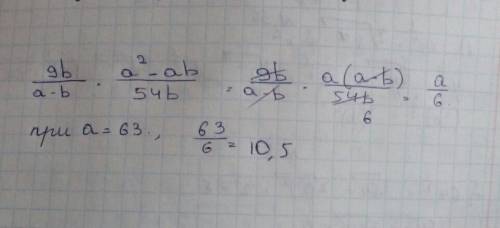 9b/(a-b) · (a² - ab)/54b = 9b/(a-b) · a(a-b)/54b = a/6
6
при a = 63., 63/6 = 10,5